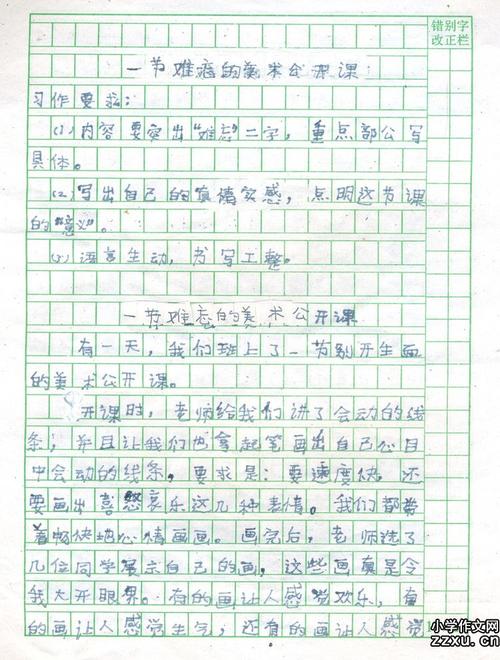 错别字
改正栏
一节难忘的美术公开课
习作要求:
(1)内容要突出“难忘”二字,重点部公写
具体。
(2)写出自己的真情实感,点明这节课
的“意义”。
(3)语言生动,书写工整。
一节难忘的美术公开课
有一天,我们班上了一节别开生面
的美术公开课。
开课时,老师给我们讲了会动的线
条;并且让我们也拿起笔画出自己心目
中会动的线条,要求是:要速度快,还
要画出喜怒哀乐这几种表情。我们都带
着畅快地心情画画。画完后,老师选了
几位同学展示自己的画,这些画真是令
我大开眼界。有的画让人感觉欢乐,有
的画让人感觉生气;还有的画让人感觉
小学作文网
zzxu.cn